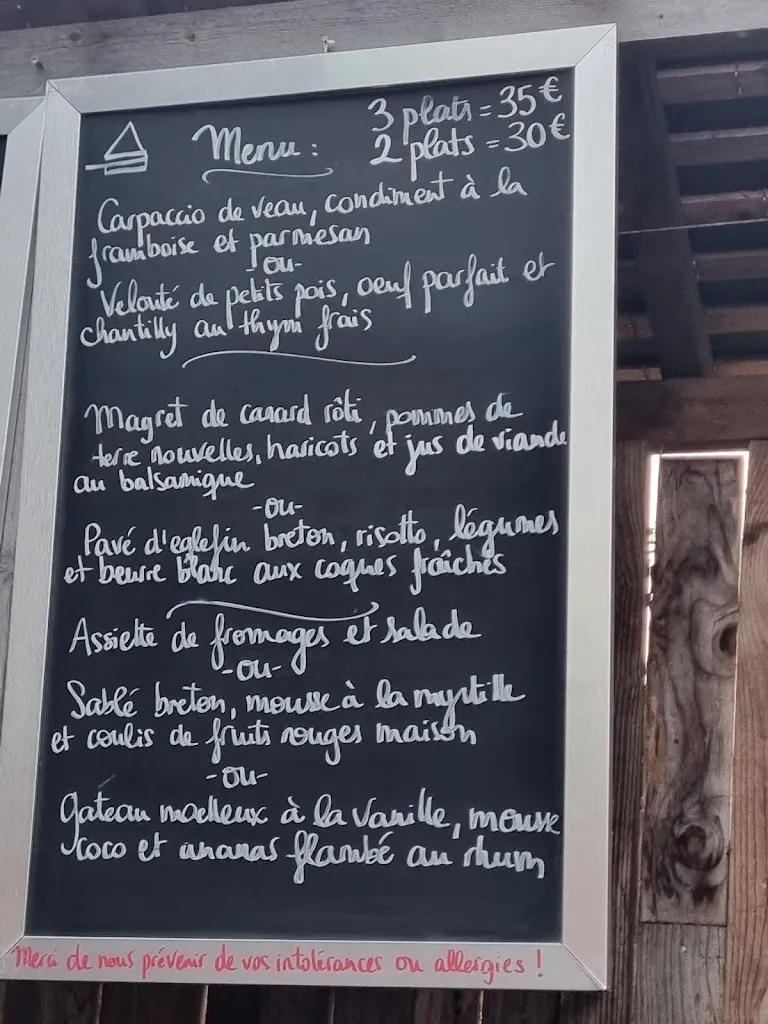 Menu :
3 plats = 35€
2 plats = 30€
Carpaccio de veau, condiment à la
framboise et parmesan
-ou-
Velouté de petits pois, oeuf parfait et
chantilly au thym frais
Magret de canard rôti, pommes de
terre nouvelles, haricots et jus de viande
au balsamique
-ou-
Pavé d'eglefin breton, risotto, légumes
et beurre blanc aux coques fraîches
Assiette de fromages et salade
-ou-
Sablé breton, mousse à la myrtille
et coulis de fruits rouges maison
-ou-
gateau moelleux à la vanille, mousse
coco et ananas flambé au rhum
Merci de nous prévenir de vos intolérances ou allergies !